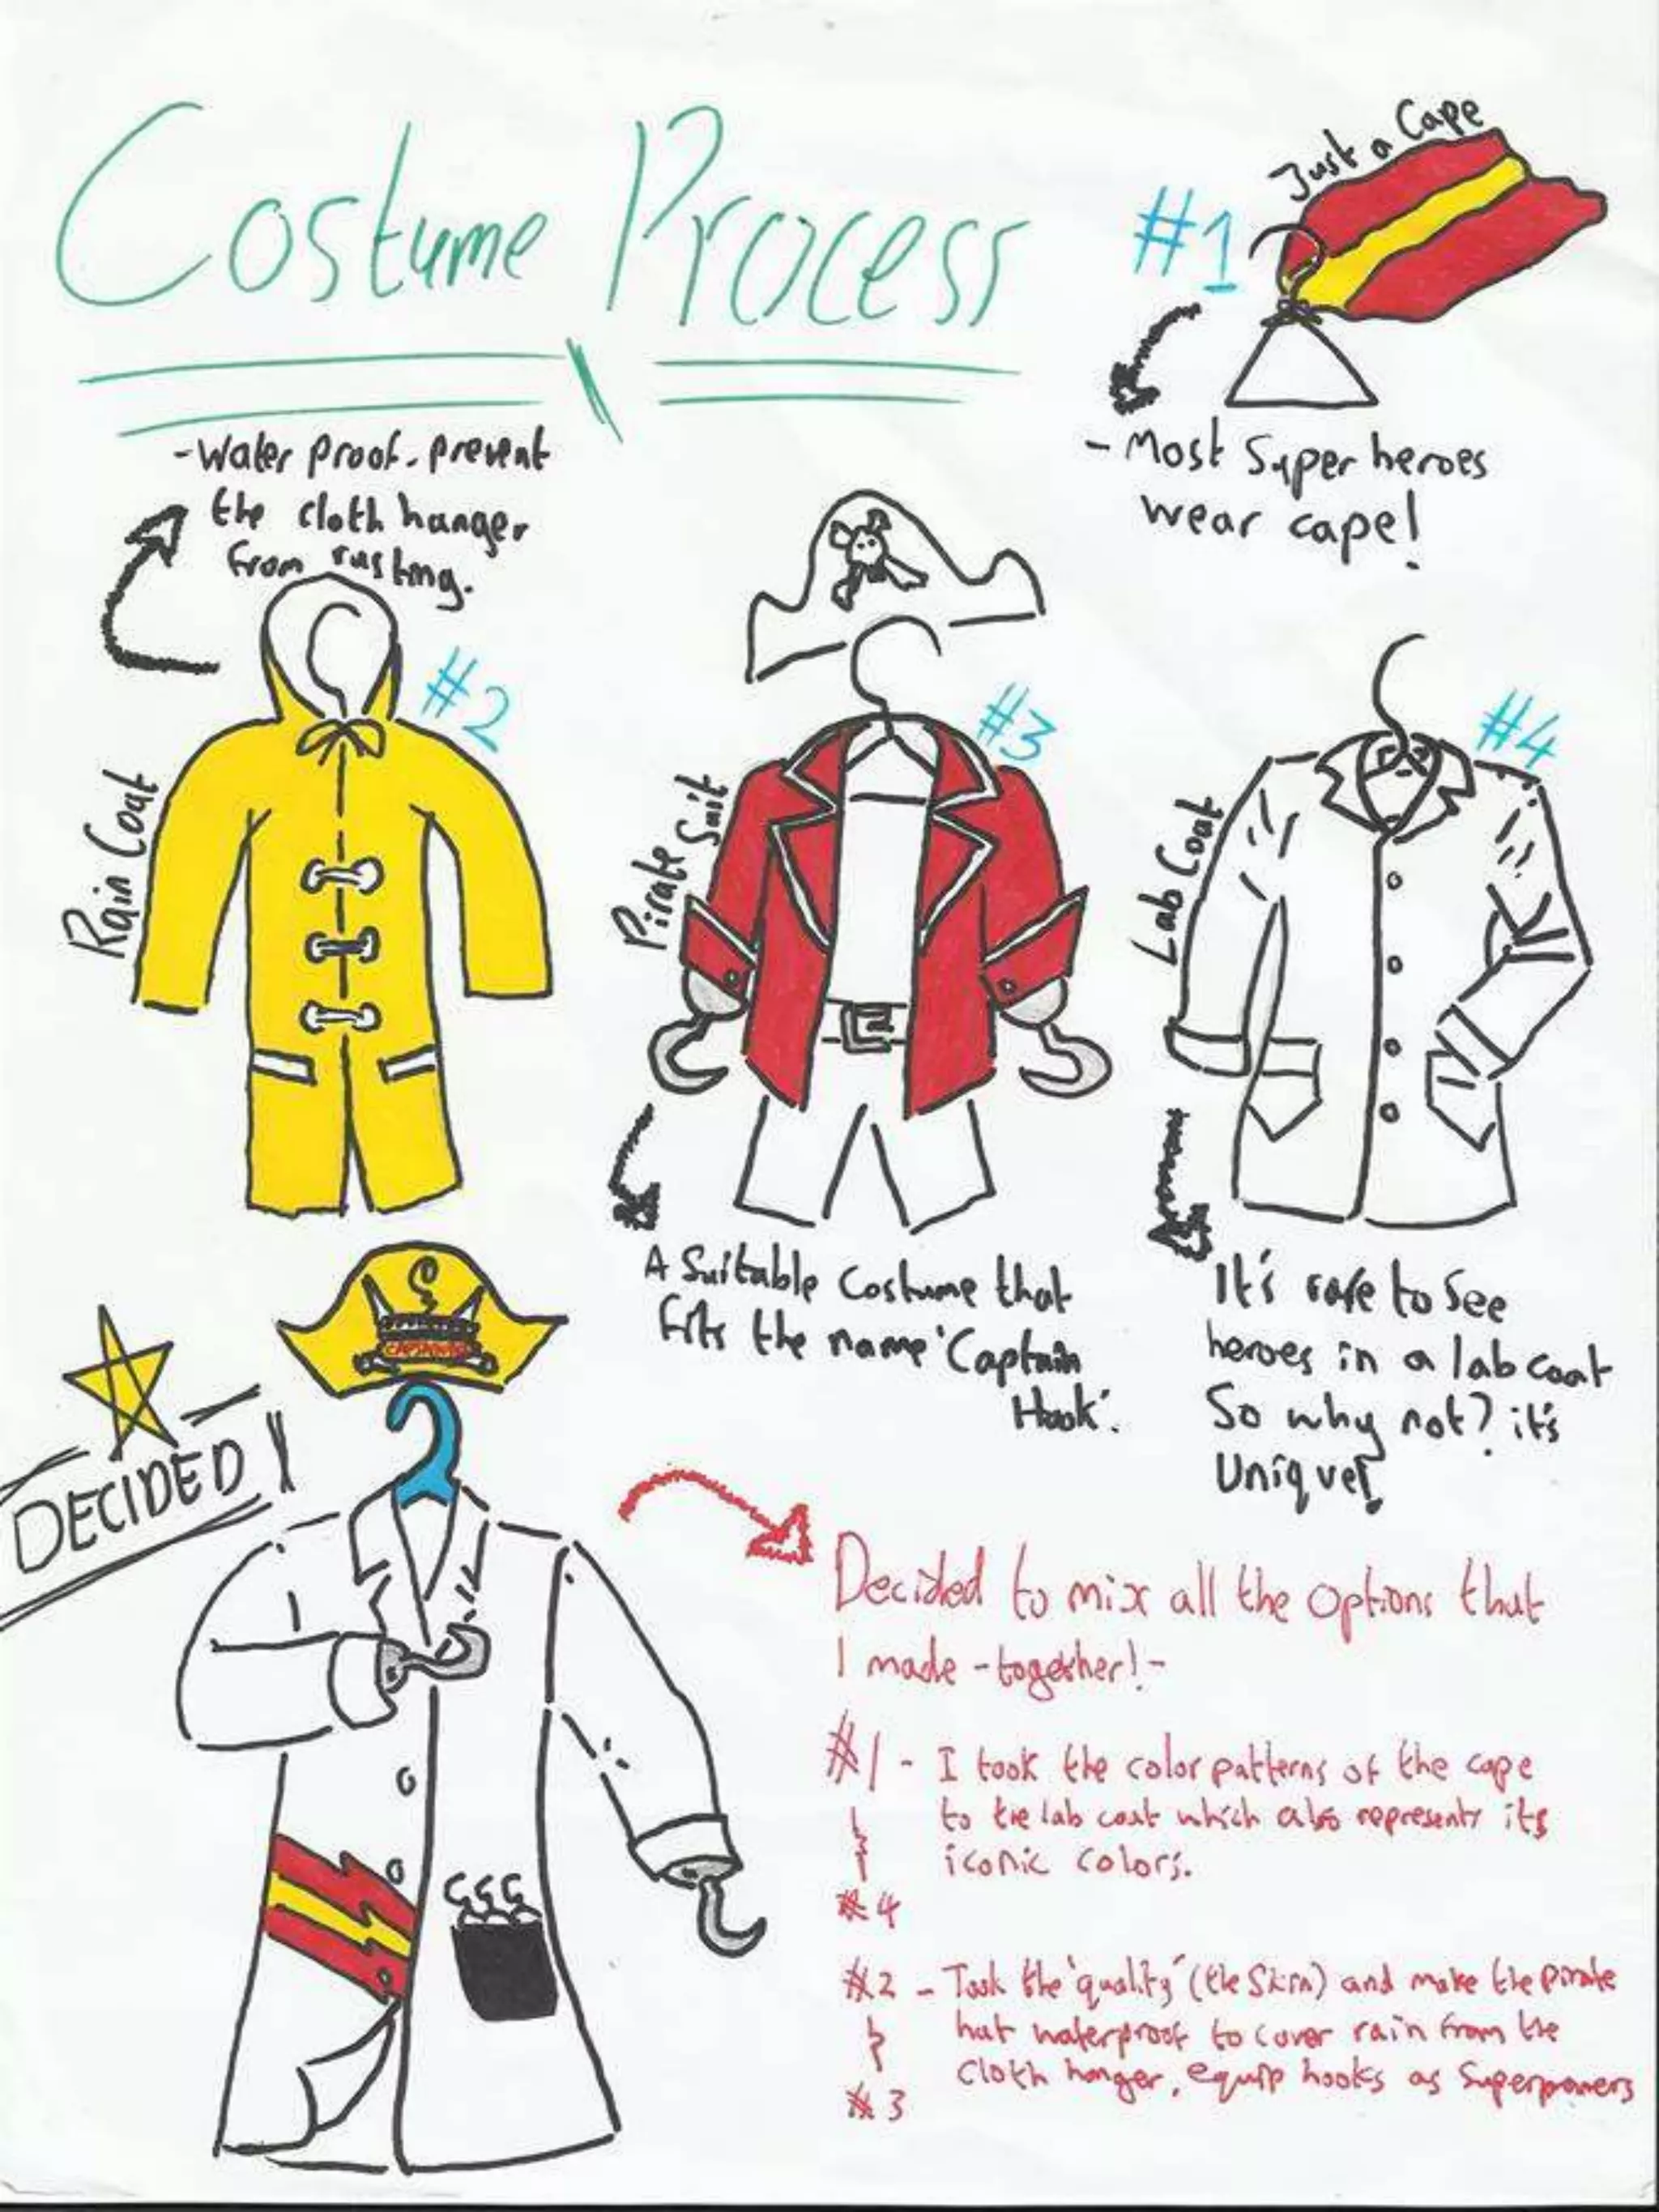 Costume Process
Just a Cape
#1
- Most Super heroes
wear cape!
- Water proof. prevent
the cloth hanger
from rusting.
#2
Rain Coat
#3
Pirate Suit
A Suitable Costume that
fits the name 'Captain
Hook'.
#4
Lab Coat
It's rare to see
heroes in a lab coat
So why not? it's
Unique!
DECIDED!
Decided to mix all the options that
I made - together! -
#1 - I took the color patterns of the cape
to the lab coat which also represents its
iconic colors.
#4
#2 - Took the 'quality' (the Skin) and make the pirate
hat waterproof to cover rain from the
cloth hanger, equip hooks as Superpowers
#3